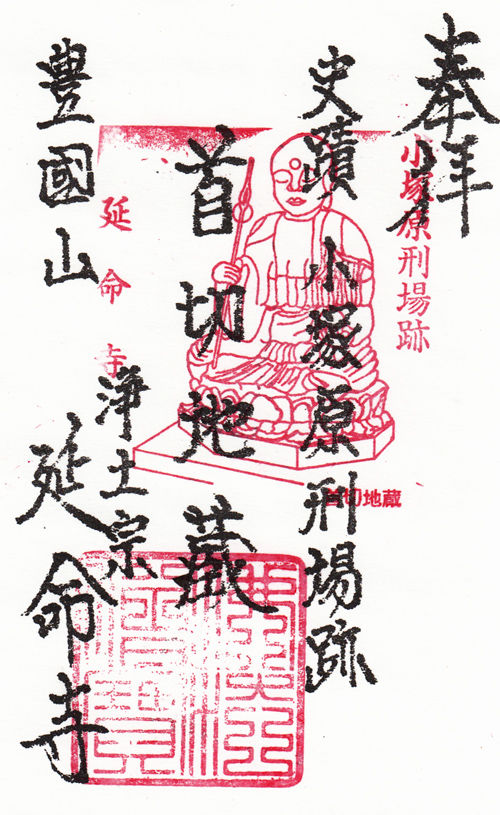 奉拝
小塚原刑場跡
史蹟 小塚原刑場跡
首切地蔵
首切地蔵
浄土宗
延命寺
豊國山 延命寺